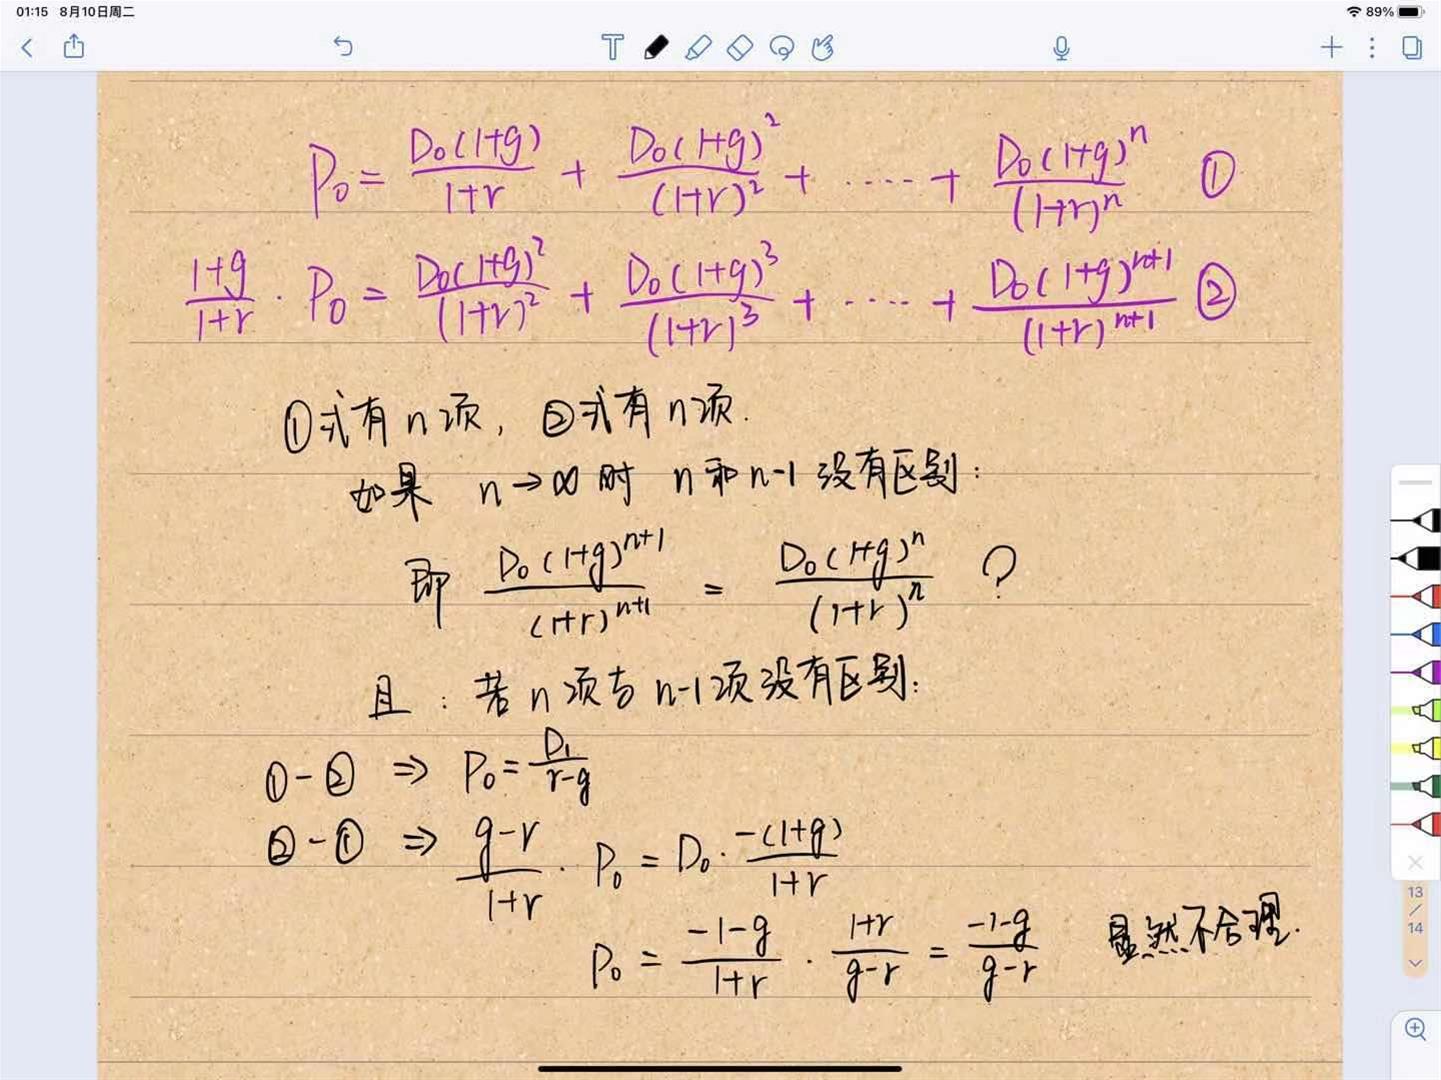 01:15 8月10日周二
89%
P₀ = D₀(1+g)/(1+r) + D₀(1+g)²/(1+r)² + ······ + D₀(1+g)ⁿ/(1+r)ⁿ ①
(1+g)/(1+r) · P₀ = D₀(1+g)²/(1+r)² + D₀(1+g)³/(1+r)³ + ······ + D₀(1+g)ⁿ⁺¹/(1+r)ⁿ⁺¹ ②
①式有n项, ②式有n项.
如果 n→∞时 n和n-1没有区别:
即 D₀(1+g)ⁿ⁺¹/(1+r)ⁿ⁺¹ = D₀(1+g)ⁿ/(1+r)ⁿ ?
且: 若n项与n-1项没有区别:
①-② ⇒ P₀ = D₁/(r-g)
②-① ⇒ (g-r)/(1+r) · P₀ = D₀ · -(1+g)/(1+r)
P₀ = (-1-g)/(1+r) · (1+r)/(g-r) = (-1-g)/(g-r) 显然不合理.
13
/
14